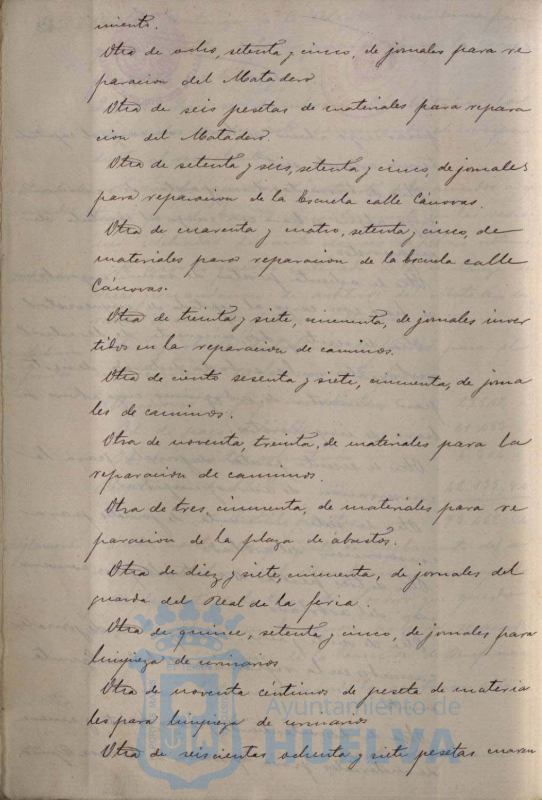 miento.
Otra de ocho, setenta y cinco, de jornales para re
paracion del Matadero
Otra de seis pesetas de materiales para repara
cion del Matadero.
Otra de setenta y seis, setenta y cinco, de jornales
para reparacion de la Escuela calle Cánovas.
Otra de cuarenta y cuatro, setenta y cinco, de
materiales para reparacion de la Escuela calle
Cánovas.
Otra de treinta y siete, cincuenta, de jornales inver
tidos en la reparacion de caminos.
Otra de ciento sesenta y siete, cincuenta, de jorna
les de caminos.
Otra de noventa, treinta, de materiales para la
reparacion de caminos.
Otra de tres, cincuenta, de materiales para re
paracion de la plaza de abastos.
Otra de diez y siete, cincuenta, de jornales del
guarda del Real de la feria.
Otra de quince, setenta y cinco, de jornales para
limpieza de urinarios
Otra de noventa céntimos de peseta de materia
les para limpieza de urinarios
Otra de seiscientas ochenta y siete pesetas cuaren
Ayuntamiento de
HUELVA